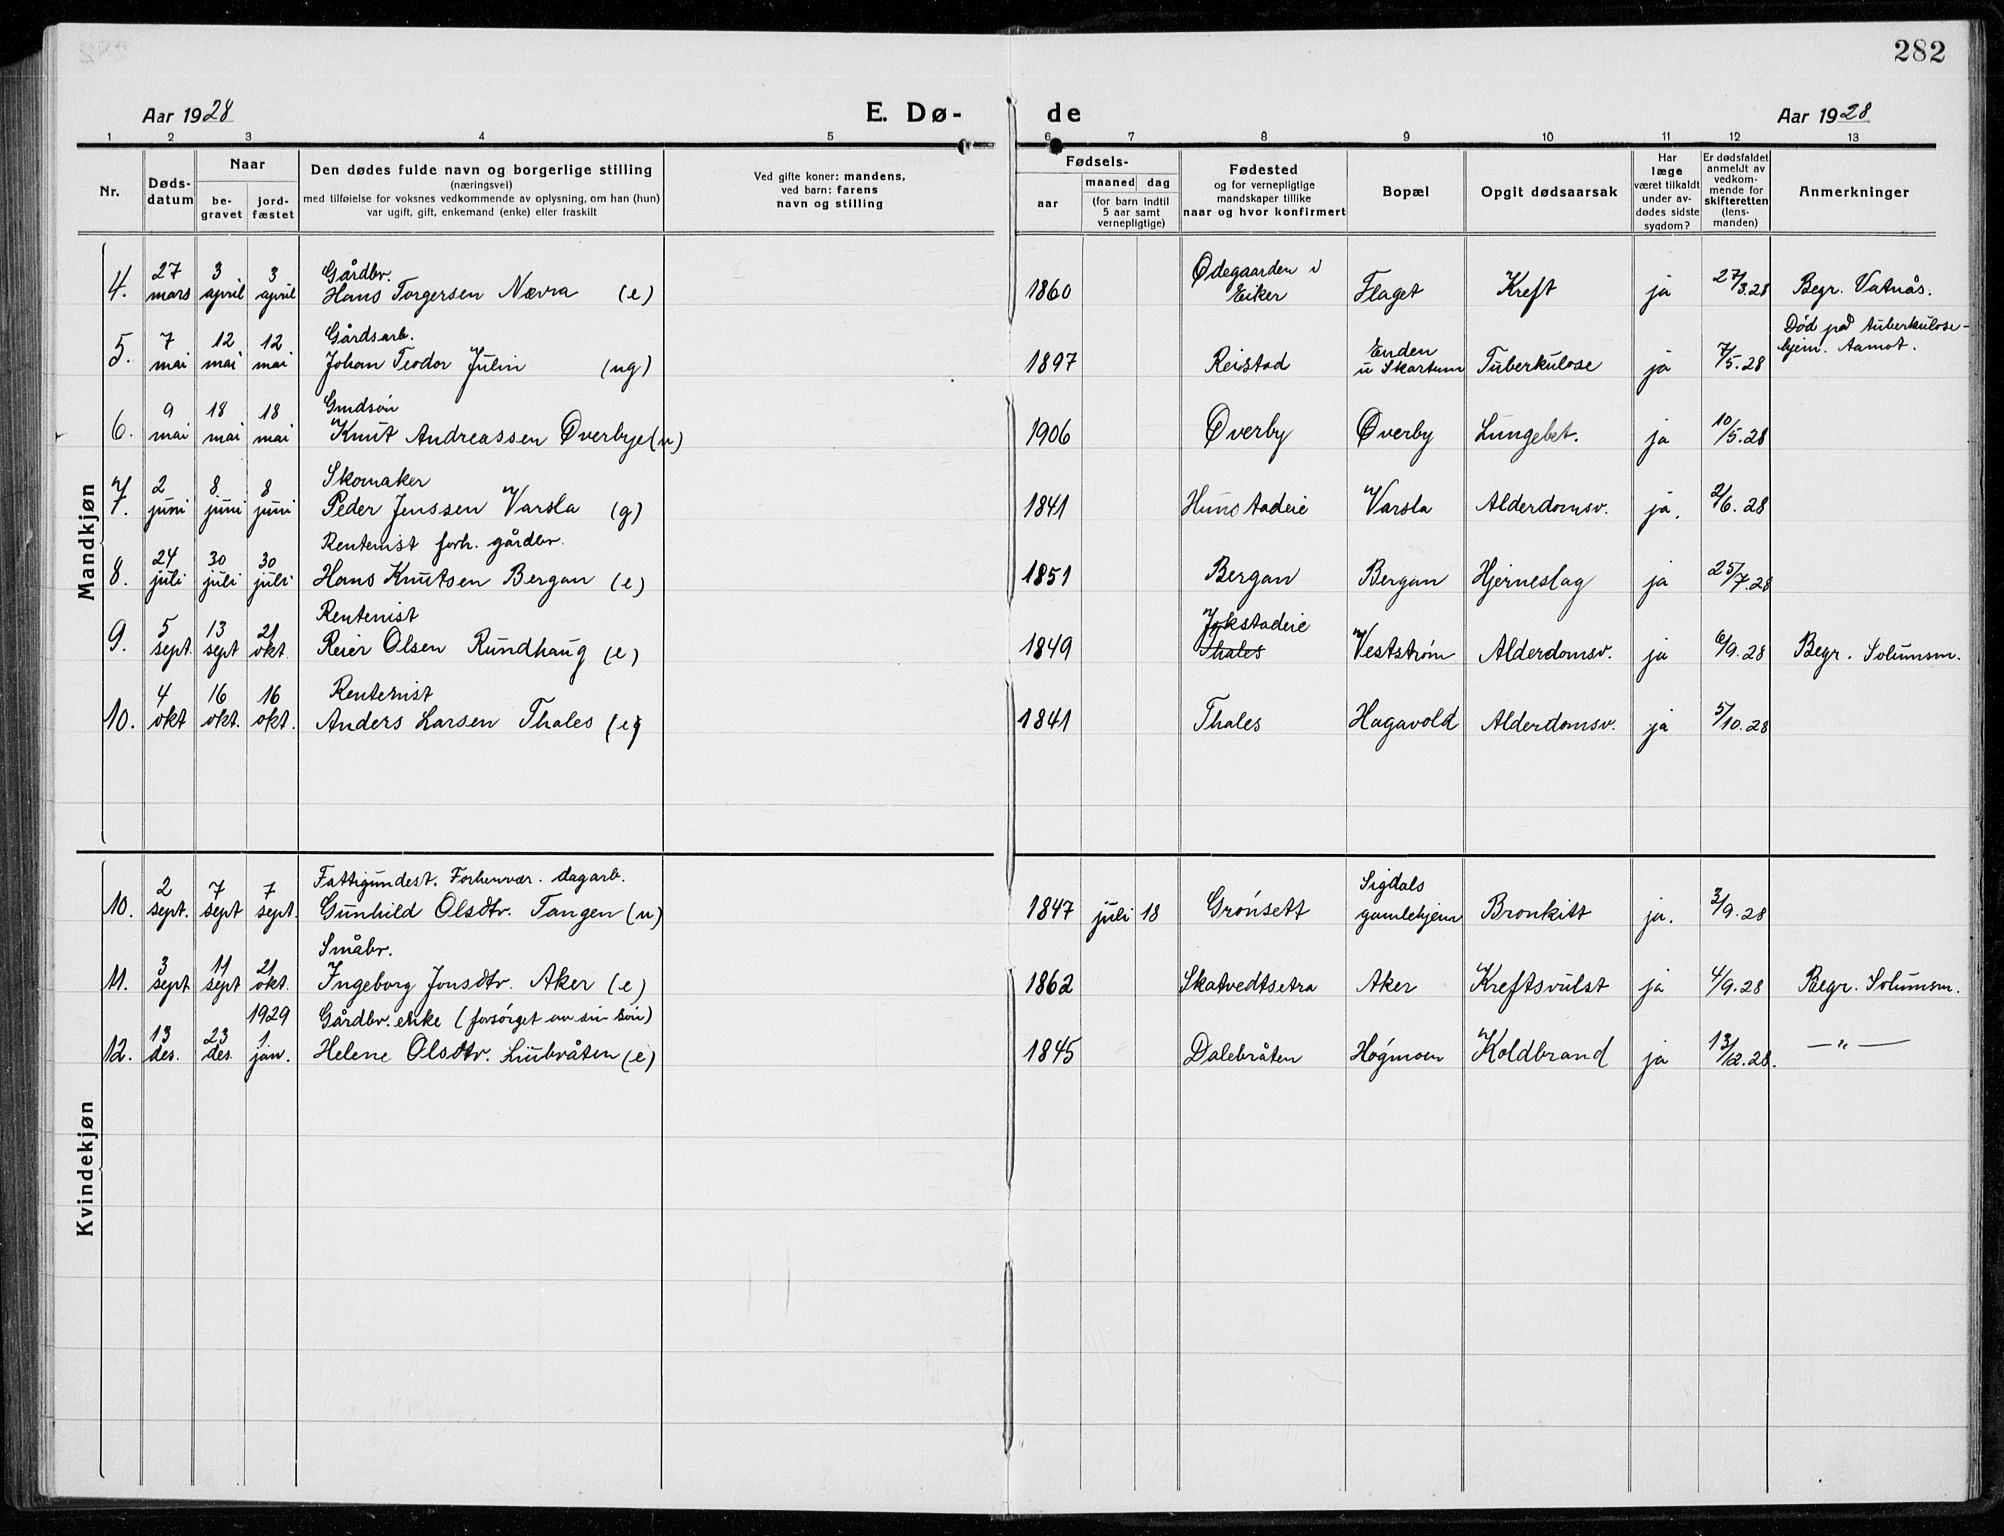 282
Aar 1928 E. Dø- de Aar 1928
1 2 3 4 5 6 7 8 9 10 11 12 13
Nr.
Døds-
datum
Naar
be-
gravet
jord-
fæstet
Den dødes fulde navn og borgerlige stilling
(næringsvei)
med tilføielse for voksnes vedkommende av oplysning, om han (hun)
var ugift, gift, enkemand (enke) eller fraskilt
Ved gifte koner: mandens,
ved barn: farens
navn og stilling
Fødsels-
aar
maaned dag
(for barn indtil
5 aar samt
vernepligtige)
Fødested
og for vernepligtige
mandskaper tillike
naar og hvor konfirmert
Bopæl
Opgit dødsaarsak
Har
læge
været tilkaldt
under av-
dødes sidste
sygdom?
Er dødsfaldet
anmeldt av
vedkom-
mende for
skifteretten
(lens-
manden)
Anmerkninger
Mandkjøn
27 3 3 Gårdbr. Ødegaarden i
4. mars april april Hans Torgersen Nævra (e) 1860 Eiker Flaget Kreft ja 27/3.28 Begr. Vatnås.
7 12 12 Gårdsarb. Enden Død på tuberkulose-
5. mai mai mai Johan Teodor Julin (ug) 1897 Reistad u Skartum Tuberkulose ja 7/5.28 hjem. Aamot.
9 18 18 Gmdsøn
6. mai mai mai Knut Andreassen Øverbye (u) 1906 Øverby Øverby Lungebet. ja 10/5.28
2 8 8 Skomaker
7. juni juni juni Peder Jenssen Varsla (g) 1841 Hunstadeie Varsla Alderdomsv. ja. 2/6.28
24 30 30 Rentenist forh. gårdbr.
8. juli juli juli Hans Knutsen Bergan (e) 1851 Bergan Bergan Hjerneslag ja 25/7.28
5 13 21 Rentenist Jokstadeie
9. sept. sept okt. Reier Olsen Rundhaug (e) 1849 Thales Vestström Alderdomsv. ja 6/9.28 Begr. Solumsm.
4 16 16 Rentenist
10. okt okt. okt. Anders Larsen Thales (e) 1841 Thales Hagavold Alderdomsv. ja 5/10.28
Kvindekjøn
2 7 7 Fattigundest. Forhenvær. dagarb. Sigdals
10. sept. sept sept. Gunhild Olsdtr. Tangen (u) 1847 juli 18 Grönsett gamlehjem Bronkitt ja. 3/9.28
3 11 21 Småbr.
11. sept sept okt. Ingeborg Jonsdtr. Aker (e) 1862 Skatvedtsetra Aker Kreftsvulst ja 4/9.28 Begr. Solumsm.
13 23 1929 1 Gårdbr. enke (forsörget av sin sön)
12. des. des. jan. Helene Olsdtr. Liubråten (e) 1845 Dalebråten Högmoen Koldbrand ja 13/12.28. —"—